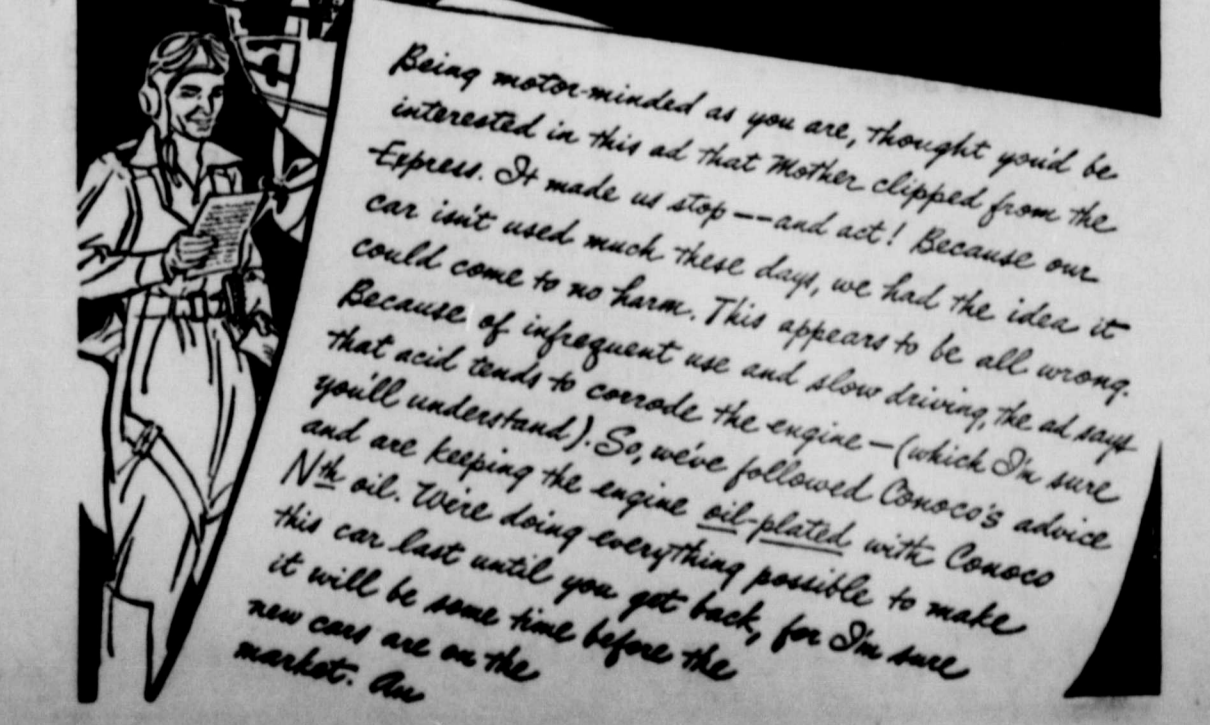 Being motor-minded as you are, thought you'd be
interested in this ad that Mother clipped from the
Express. It made us stop--and act! Because our
car isn't used much these days, we had the idea it
could come to no harm. This appears to be all wrong.
Because of infrequent use and slow driving, the ad says
that acid tends to corrode the engine—(which I'm sure
you'll understand). So, we've followed Conoco's advice
and are keeping the engine oil-plated with Conoco
Nth oil. We're doing everything possible to make
this car last until you get back, for I'm sure
it will be some time before the
new cars are on the
market. An